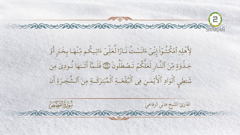 2
لِأَهْلِهِ ٱمْكُثُوٓا۟ إِنِّىٓ ءَانَسْتُ نَارًا لَّعَلِّىٓ ءَاتِيكُم مِّنْهَا بِخَبَرٍ أَوْ
جَذْوَةٍ مِّنَ ٱلنَّارِ لَعَلَّكُمْ تَصْطَلُونَ فَلَمَّآ أَتَىٰهَا نُودِىَ مِن
شَٰطِئِ ٱلْوَادِ ٱلْأَيْمَنِ فِى ٱلْبُقْعَةِ ٱلْمُبَٰرَكَةِ مِنَ ٱلشَّجَرَةِ أَن
القارئ الشيخ هاني الرفاعي
سورة القصص